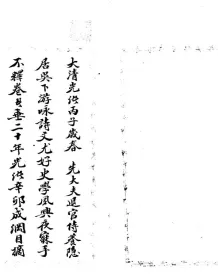 大清光緒丙子歲春 先大夫退官侍養隱
居吳下游詠詩文尤好史學夙興夜寐手
不釋卷者垂二十年光緒辛卯成綱目摘